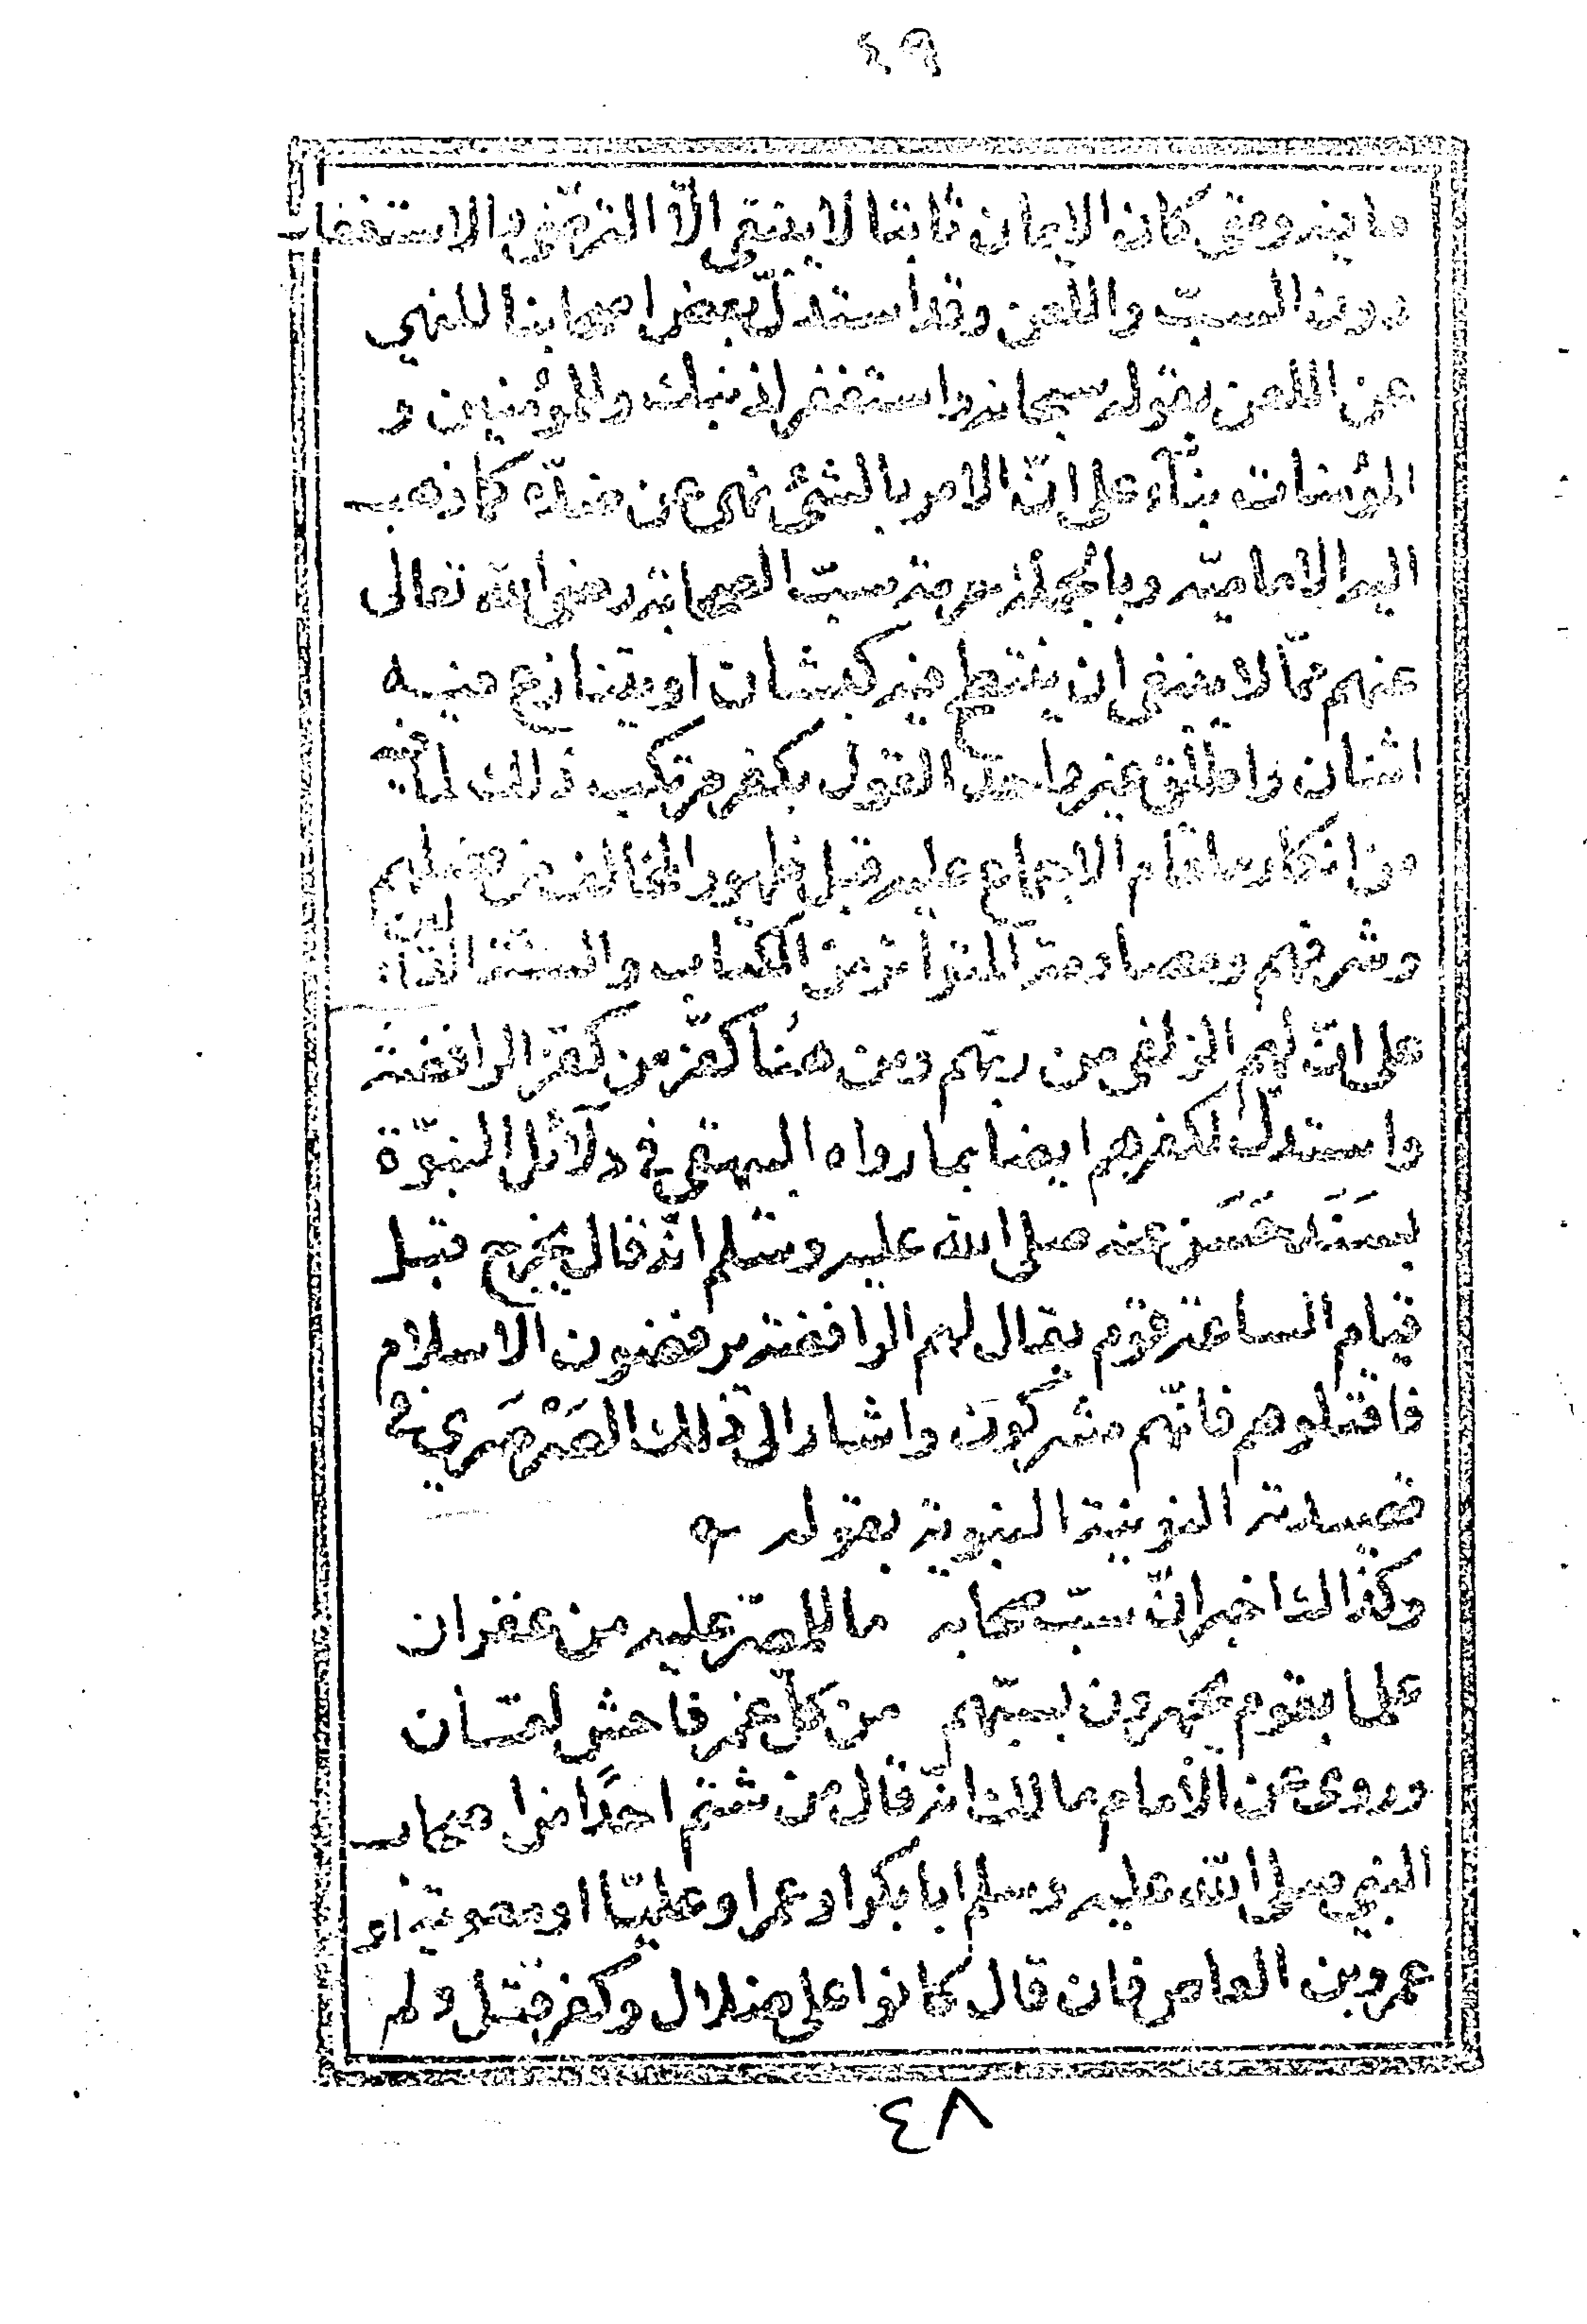 ٤٩
ما فيه ومتى كان الايمان ثابتا لا يبقى الّا الترضّي والاستغفار
دون السبّ واللعن وقد استدلّ بعض اصحابنا للنهي
عن اللعن بقوله سبحانه واستغفر لذنبك وللمؤمنين و
المؤمنات بنآء على انّ الامر بالشئ نهى عن ضدّه كما ذهب
اليه الاماميّه وبالجملة حرمة سبّ الصحابة رضى الله تعالى
عنهم ممّا لا ينبغى ان ينتطح فيه كبشان او يتنازع فيه
اثنان واطلق غير واحد القول بكفر مرتكب ذلك لما فيه
من انكار ما قام الاجماع عليه قبل ظهور المخالف من فضلهم
وشرفهم ومصادمة المتواتر من الكتاب والسنة الدالين
على انّ لهم الزلفى من ربّهم ومن هُنا كفّر من كفّر الرافضة
واستدلّ لكفرهم ايضا بما رواه البيهقى فى دلآئل النبوّة
بسَنَد حَسَن عنه صلى الله عليه وسّلم انّه قال يخرج قبل
قيام الساعة قوم يقال لهم الرافضة يرفضون الاسلام
فاقتلوهم فانّهم مشركون واشار الى ذلك الصَرْصَري في
قصيدته النونية النبوية بقوله
وكذاك اخبر انّ سبّ صحابه ما للمصرّ عليه من غفران
علما بقوم يجهرون بسبّهم من كلّ غمر فاحش لعّان
وروى عن الامام مالك انّه قال من شتم احدًا من اصحاب
النبي صلى الله عليه وسلم ابا بكر او عمر او عليّا او معوية او
عمرو بن العاص فان قال كانوا على ضلال وكفر قتل ولم
٤٨